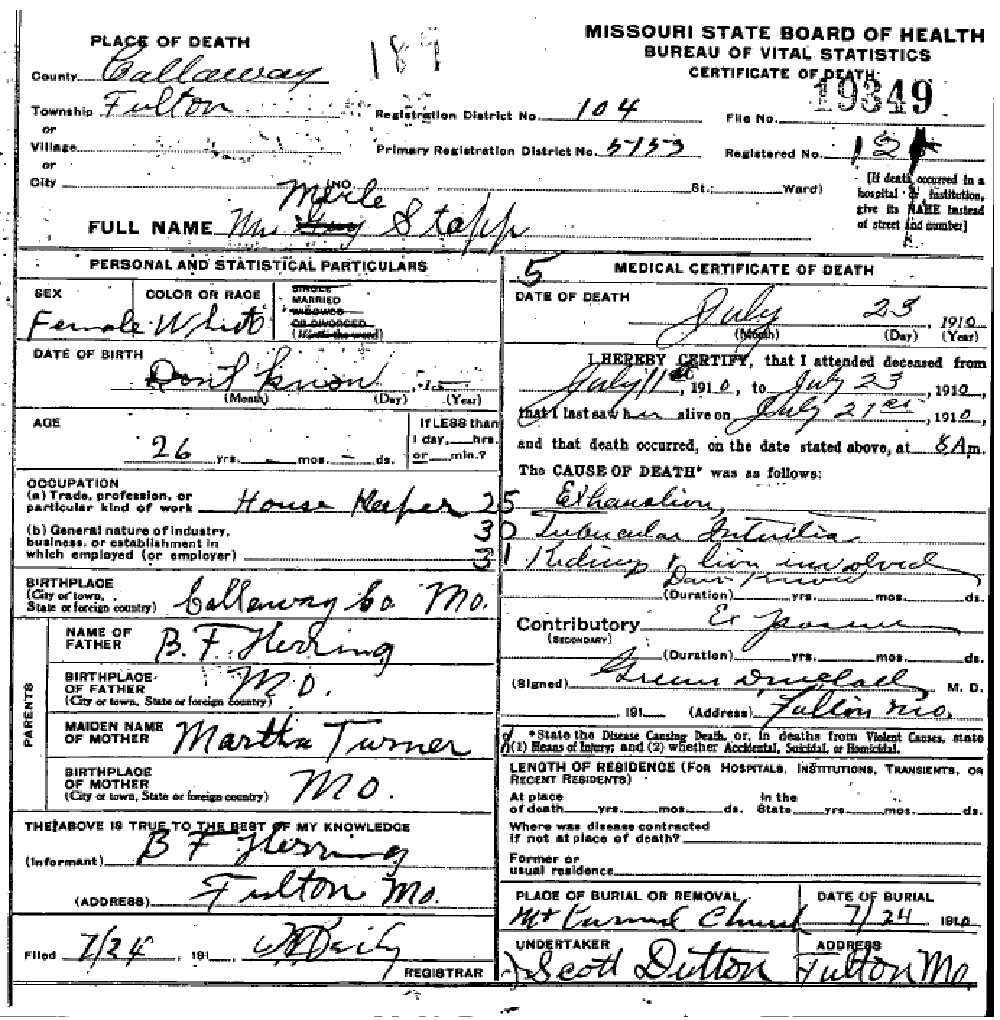 MISSOURI STATE BOARD OF HEALTH
BUREAU OF VITAL STATISTICS
CERTIFICATE OF DEATH
19349
189
PLACE OF DEATH
County Callaway
Township Fulton
Registration District No. 104
File No.
or
Village
Primary Registration District No. 5153
Registered No. 12
or
City
(NO.
St.;
Ward)
[If death occurred in a
hospital or institution,
give its NAME instead
of street and number]
Merle
FULL NAME Mrs Stapp
PERSONAL AND STATISTICAL PARTICULARS
SEX
Female
COLOR OR RACE
White
SINGLE
MARRIED
WIDOWED
OR DIVORCED
(Write the word)
DATE OF BIRTH
Dont know
(Month) (Day) (Year)
AGE
26 yrs. - mos. - ds.
If LESS than
1 day, hrs.
or min.?
OCCUPATION
(a) Trade, profession, or
particular kind of work House Keeper
(b) General nature of industry,
business, or establishment in
which employed (or employer)
BIRTHPLACE
(City or town,
State or foreign country) Callaway Co Mo.
PARENTS
NAME OF
FATHER B. F. Herring
BIRTHPLACE
OF FATHER
(City or town, State or foreign country) MO.
MAIDEN NAME
OF MOTHER Martha Turner
BIRTHPLACE
OF MOTHER
(City or town, State or foreign country) MO.
THE ABOVE IS TRUE TO THE BEST OF MY KNOWLEDGE
(Informant) B F Herring
(ADDRESS) Fulton Mo.
Filed 7/24, 191
REGISTRAR
5
MEDICAL CERTIFICATE OF DEATH
DATE OF DEATH
July 23, 1910
(Month) (Day) (Year)
I HEREBY CERTIFY, that I attended deceased from
July 11th, 1910, to July 23, 1910,
that I last saw her alive on July 21st, 1910,
and that death occurred, on the date stated above, at 8 Am.
The CAUSE OF DEATH* was as follows:
25 Exhaustion,
30
31 involved
Dont Know
(Duration) yrs. mos. ds.
Contributory
(SECONDARY)
(Duration) yrs. mos. ds.
(Signed) M. D.
191 (Address) Fulton Mo.
*State the Disease Causing Death, or, in deaths from Violent Causes, state
(1) Means of Injury; and (2) whether Accidental, Suicidal, or Homicidal.
LENGTH OF RESIDENCE (FOR HOSPITALS, INSTITUTIONS, TRANSIENTS, OR
RECENT RESIDENTS)
At place
of death yrs. mos. ds.
In the
State yrs. mos. ds.
Where was disease contracted
if not at place of death?
Former or
usual residence
PLACE OF BURIAL OR REMOVAL
Church
DATE OF BURIAL
7/24 1910
UNDERTAKER
Scott Dutton
ADDRESS
Fulton Mo.